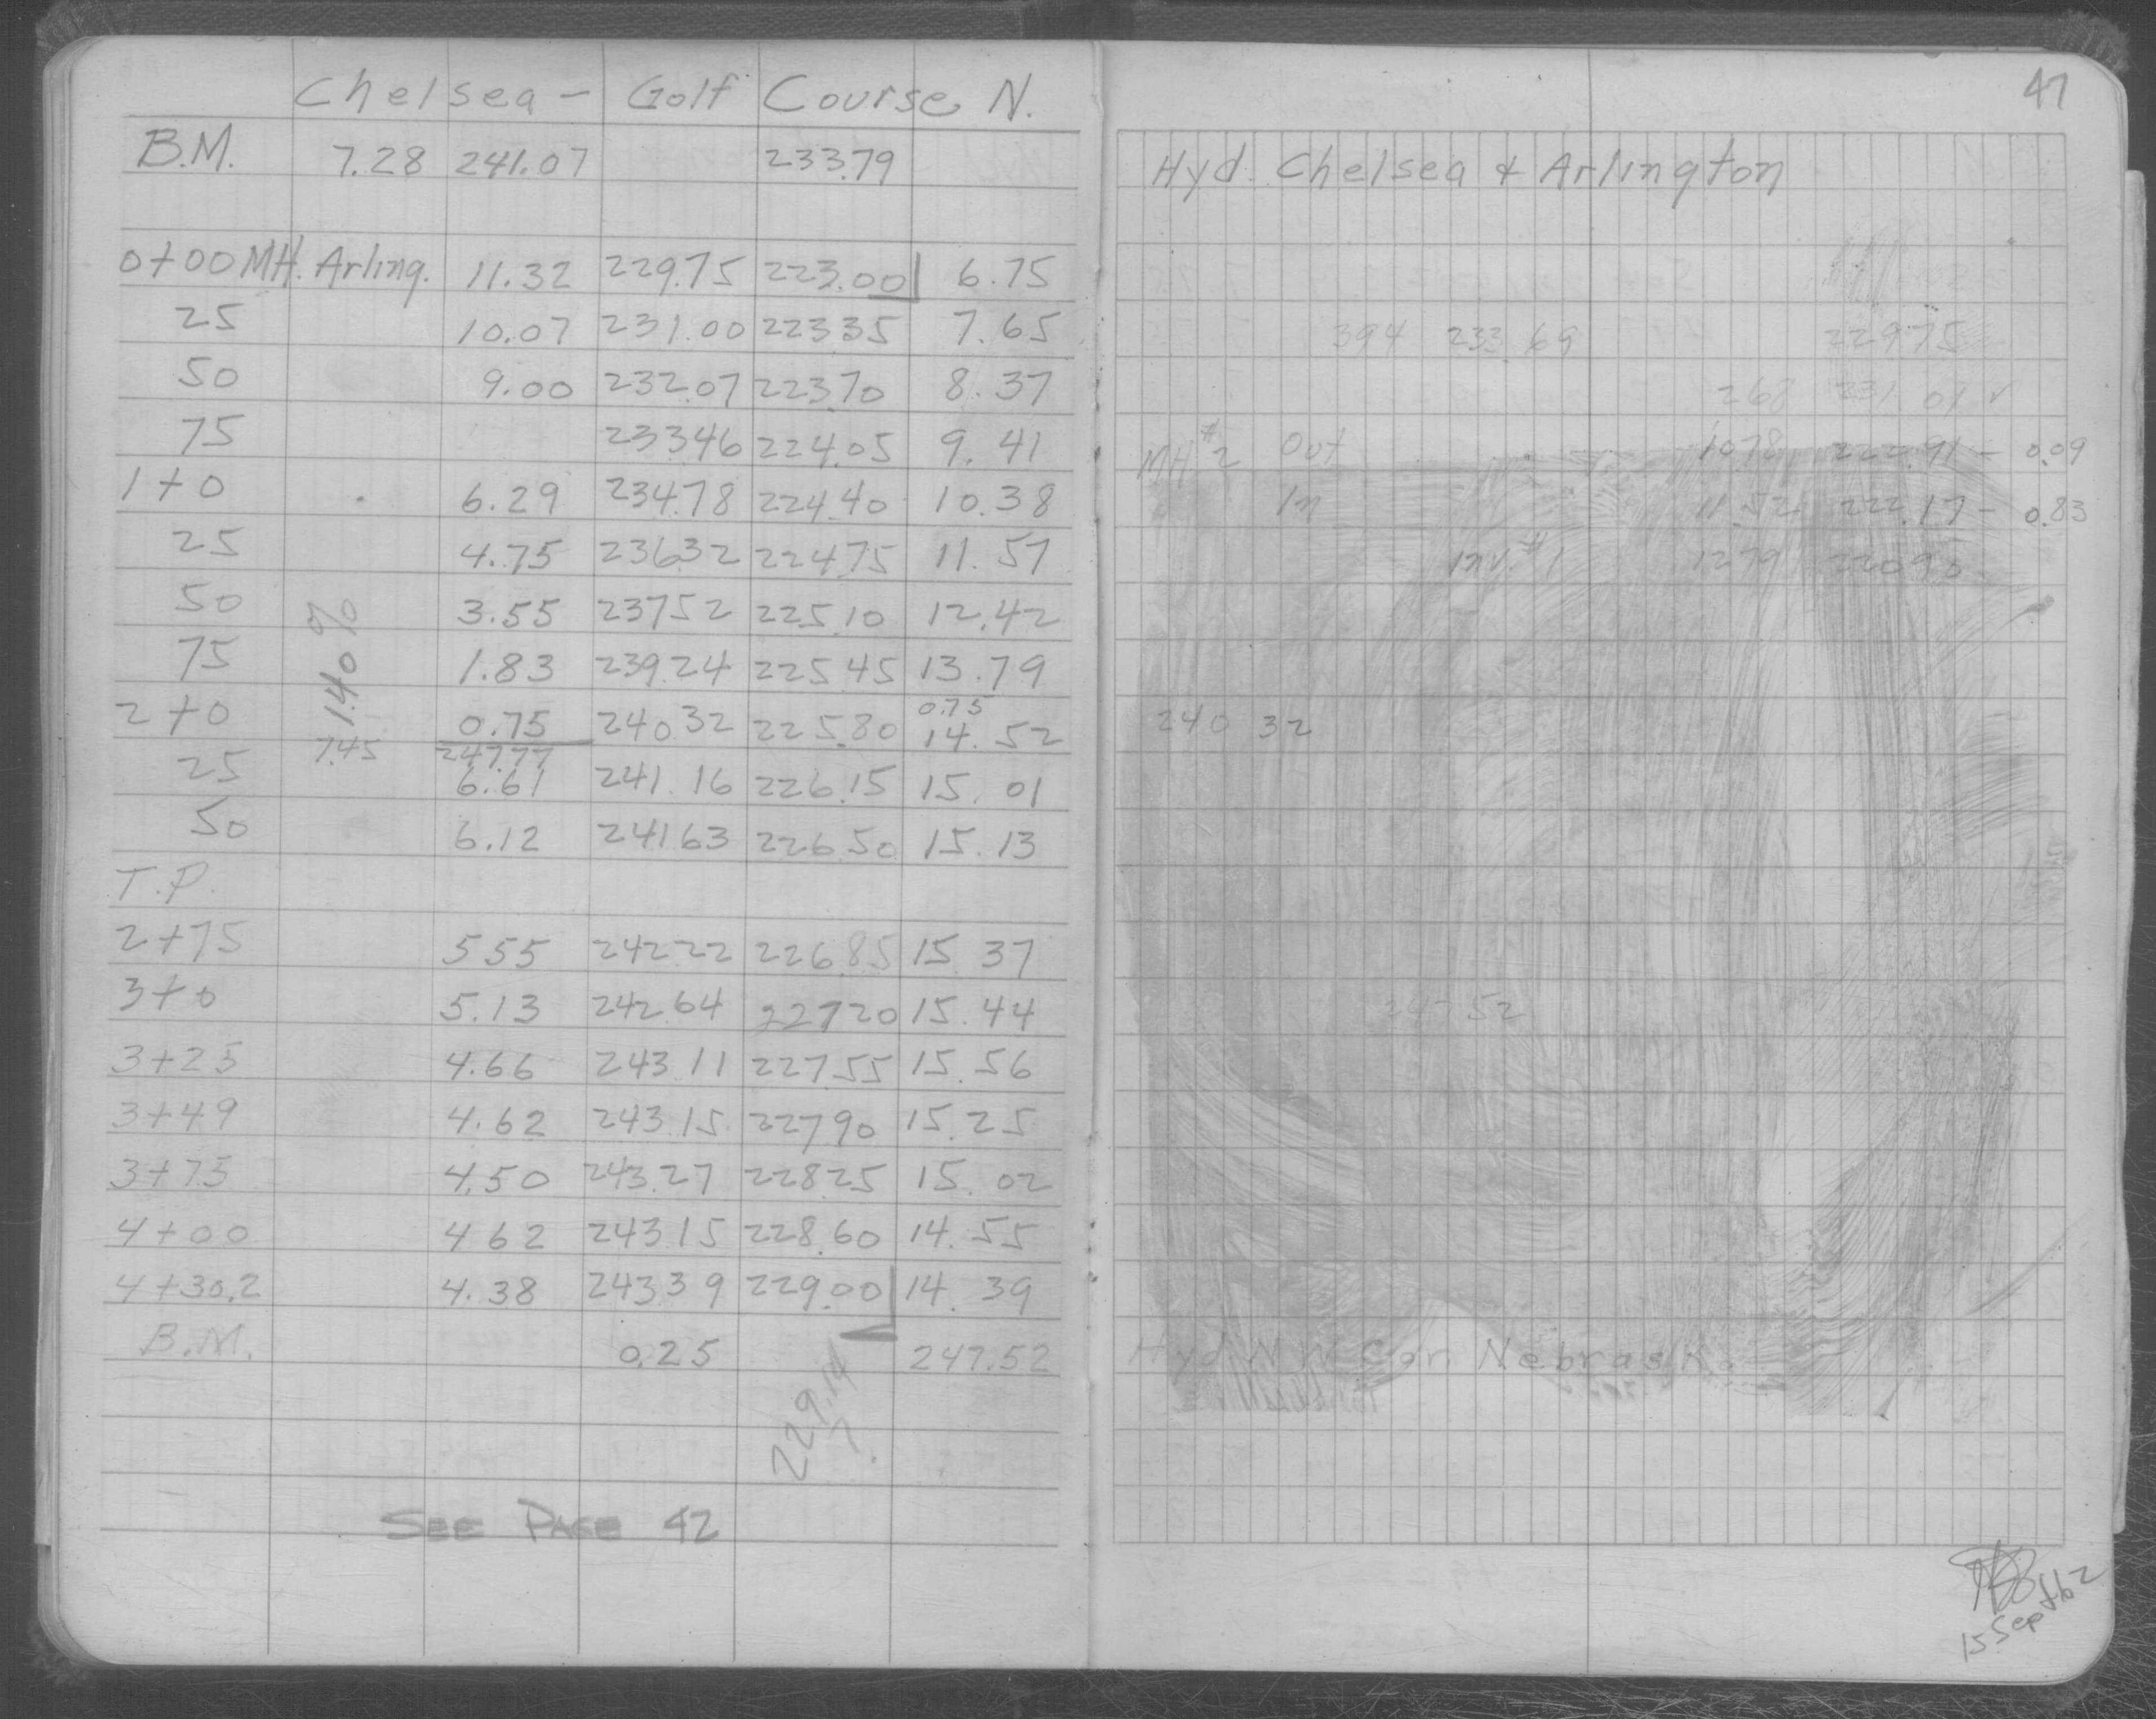 Chelsea - Golf Course N.
B.M. 7.28 241.07 233.79
0+00 MH. Arling. 11.32 229.75 223.00 6.75
25 10.07 231.00 223 35 7.65
50 9.00 232.07 223.70 8.37
75 233 46 224.05 9.41
1+0 6.29 234.78 224.40 10.38
25 4.75 236 32 224 75 11.57
50 3.55 237 52 225.10 12.42
75 1.83 239.24 225.45 13.79
1.40 %
0.75
2+0 0.75 240 32 225.80 14.52
7.45 247.77
25 6.61 241.16 226.15 15.01
50 6.12 241 63 226 50 15.13
T.P.
2+75 5 55 242 22 226.85 15.37
3+0 5.13 242.64 227 20 15.44
3+25 4.66 243.11 227.55 15.56
3+49 4.62 243.15 227 90 15.25
3+75 4.50 243.27 228 25 15.02
4+00 4 62 243 15 228.60 14.55
4+30.2 4.38 243 39 229.00 14.39
B.M. 0.25 247.52
229.14
SEE PAGE 42
Hyd. Chelsea & Arlington
394 233.69 229 75
268 231 01 ✓
MH #2 Out 1078 222.91 - 0.09
In 11.52 222.17 - 0.83
Inv #1 1279 220 90
240 32
247 52
Hyd N W Cor. Nebraska
15 Sept 62